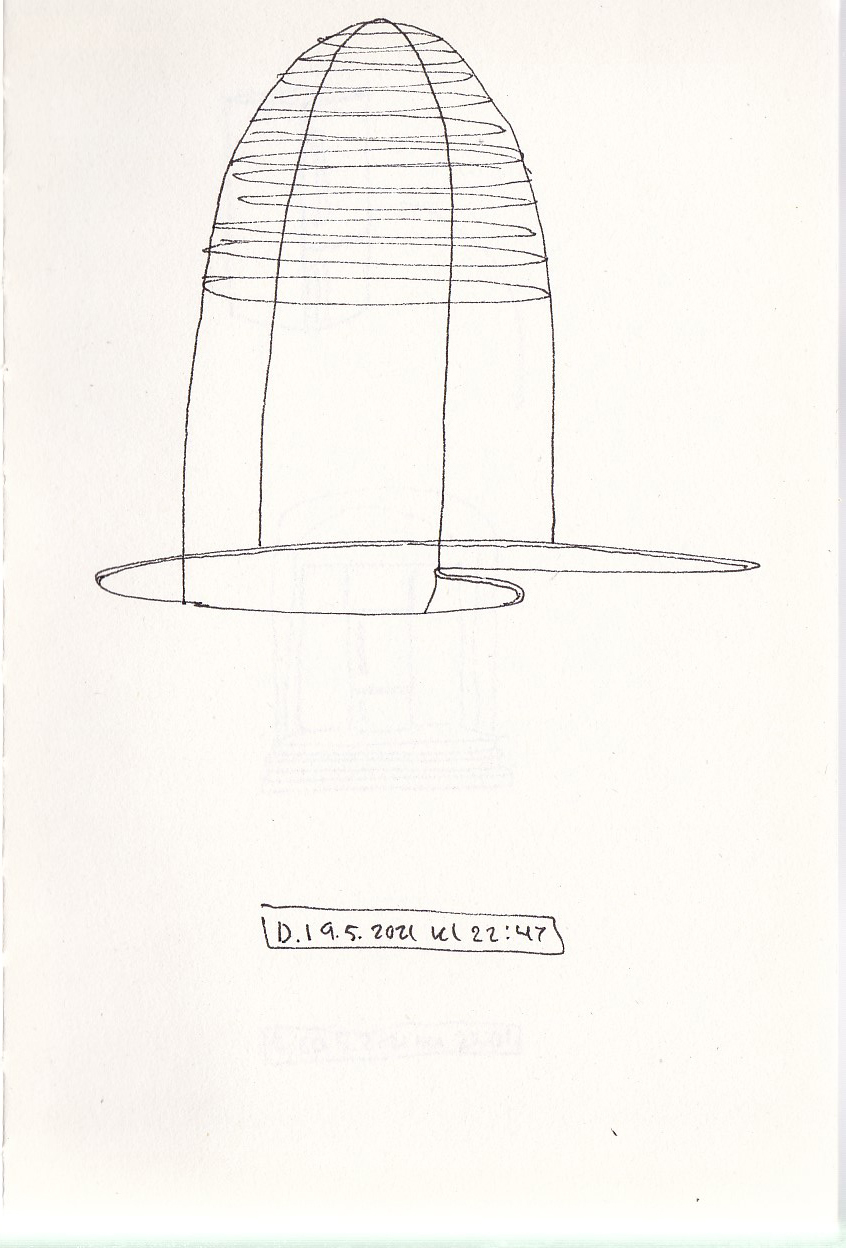 D.19.5.2021 kl 22:47